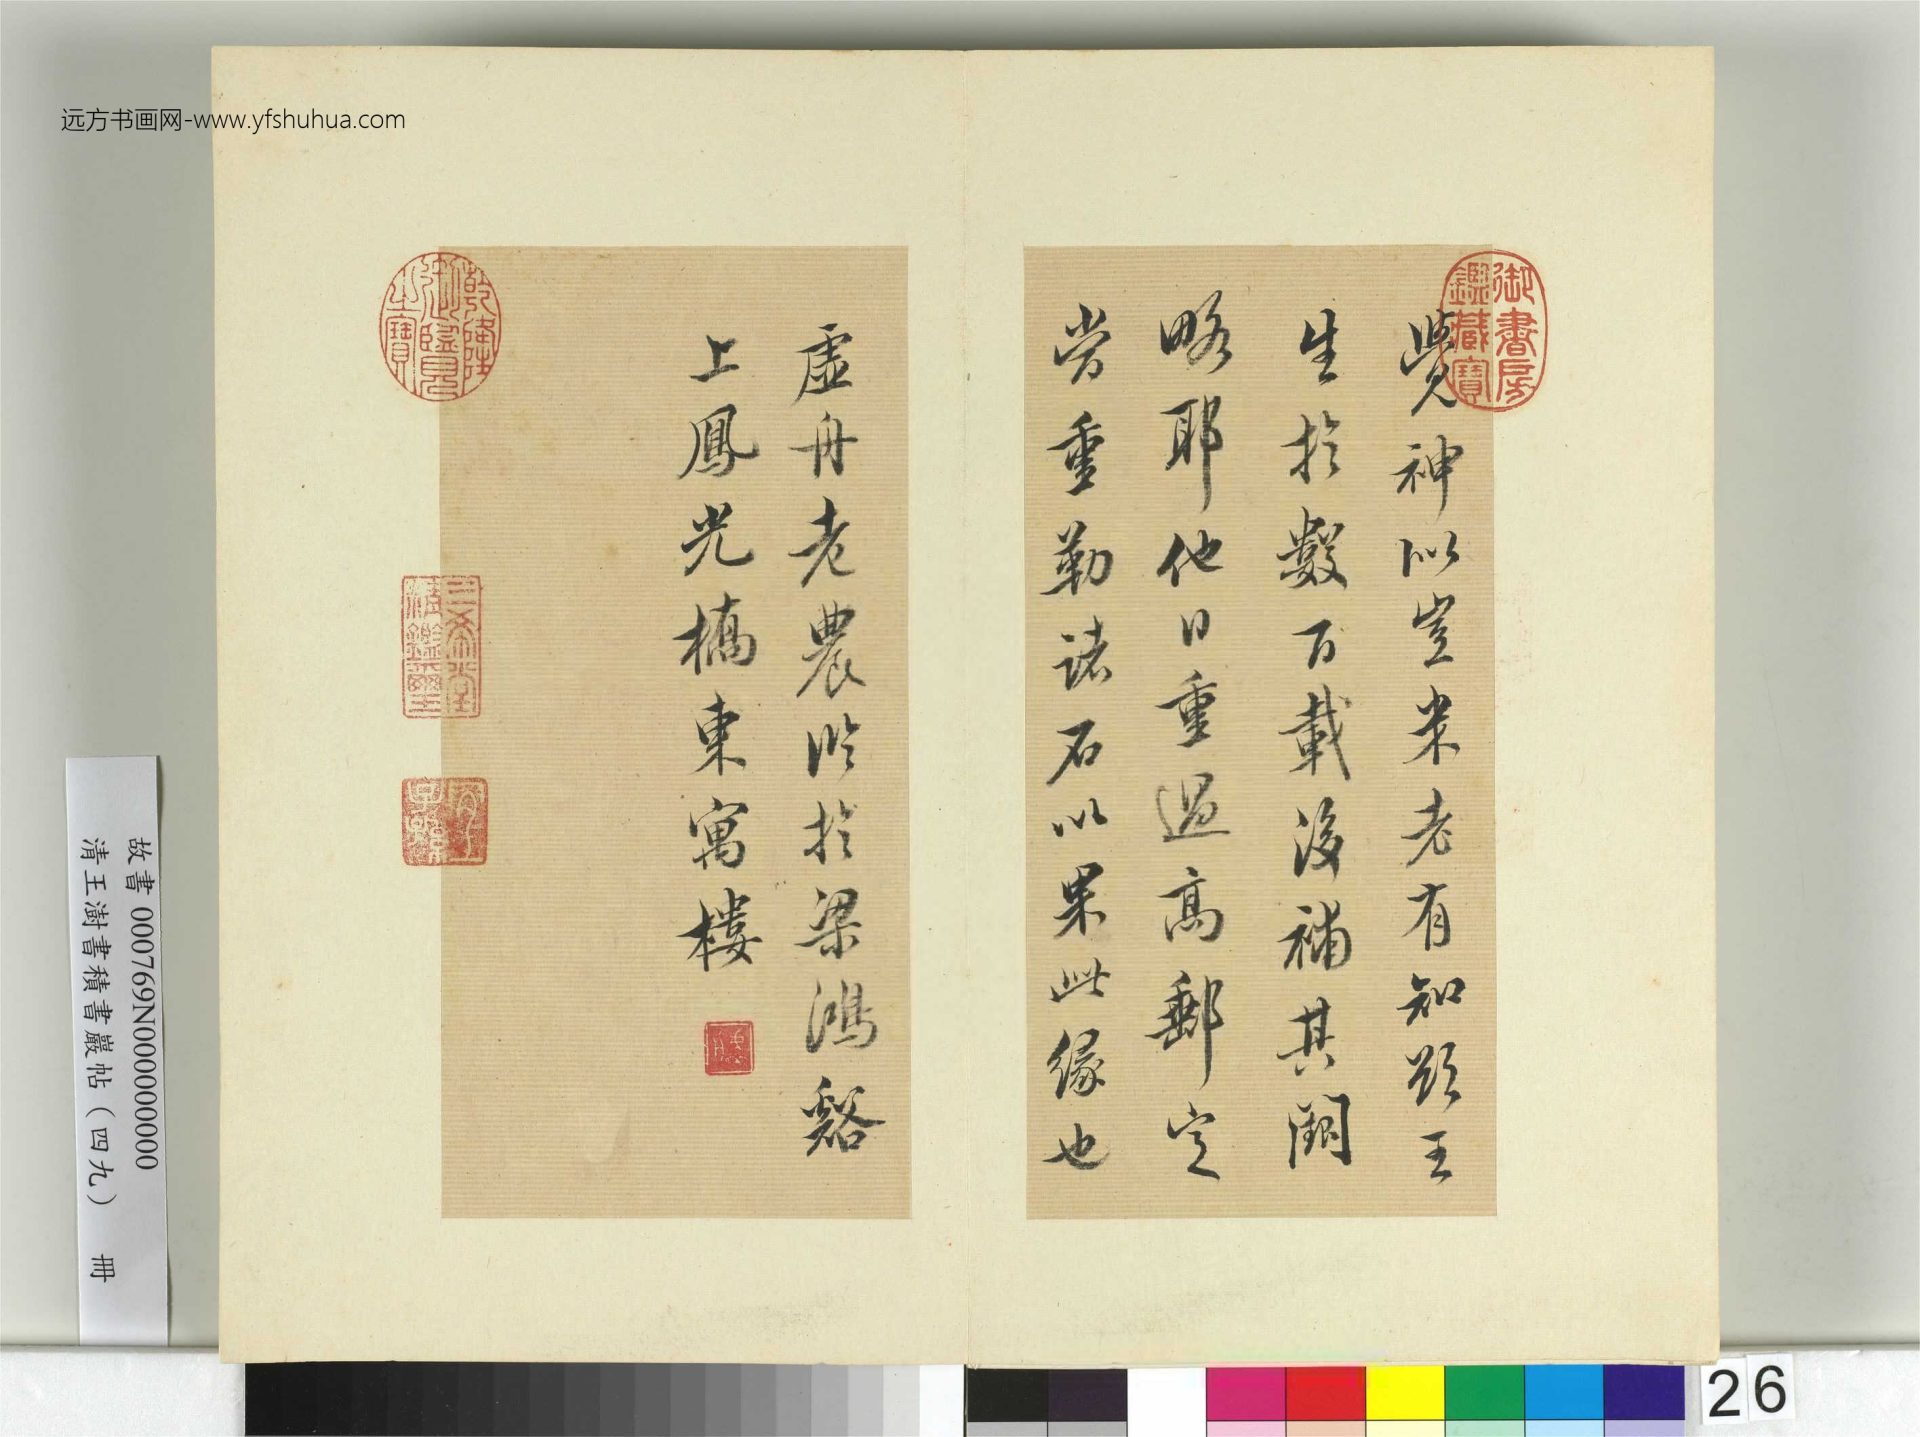 远方书画网-www.yfshuhua.com
御書房
鑑藏寶
覺神似豈米老有知欲王
生於數百載後補其闕
略耶他日重過高郵定
當重勒諸石以果此緣也
虛舟老農臨於梁鴻谿
上鳳光橋東寓樓
乾隆
御覽
之寶
三希堂
精鑑璽
宜子
孫
故書 000769N000000000
清王澍書積書巖帖（四九） 冊
26